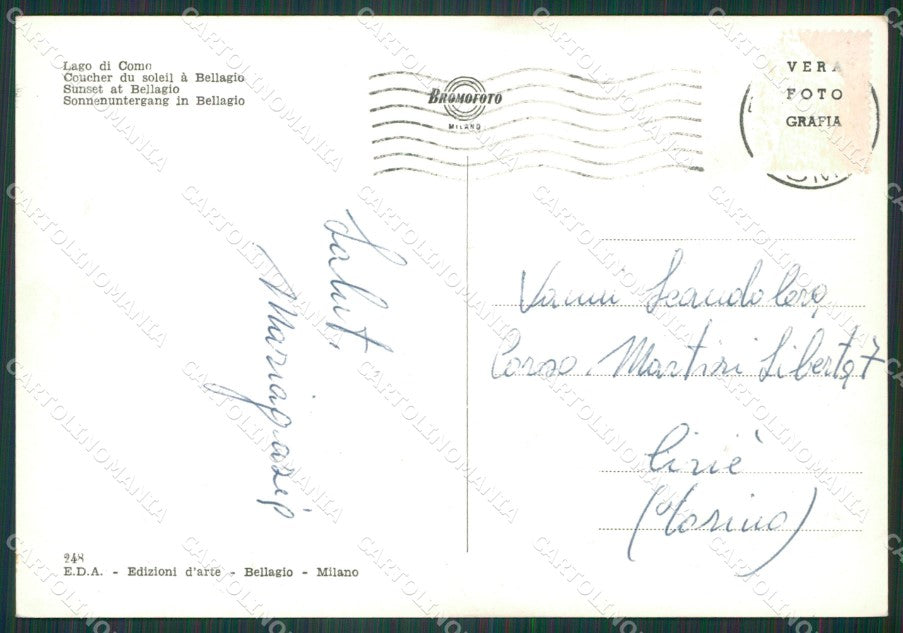 Lago di Como
Coucher du soleil à Bellagio
Sunset at Bellagio
Sonnenuntergang in Bellagio
BROMOFOTO
MILANO
VERA
FOTO
GRAFIA
Saluti,
Mariagrazia
Vanni Scandolera
Corso Martiri Libertà 7
Ciriè
(Torino)
248
E.D.A. - Edizioni d'arte - Bellagio - Milano
CARTOLINOMANIA